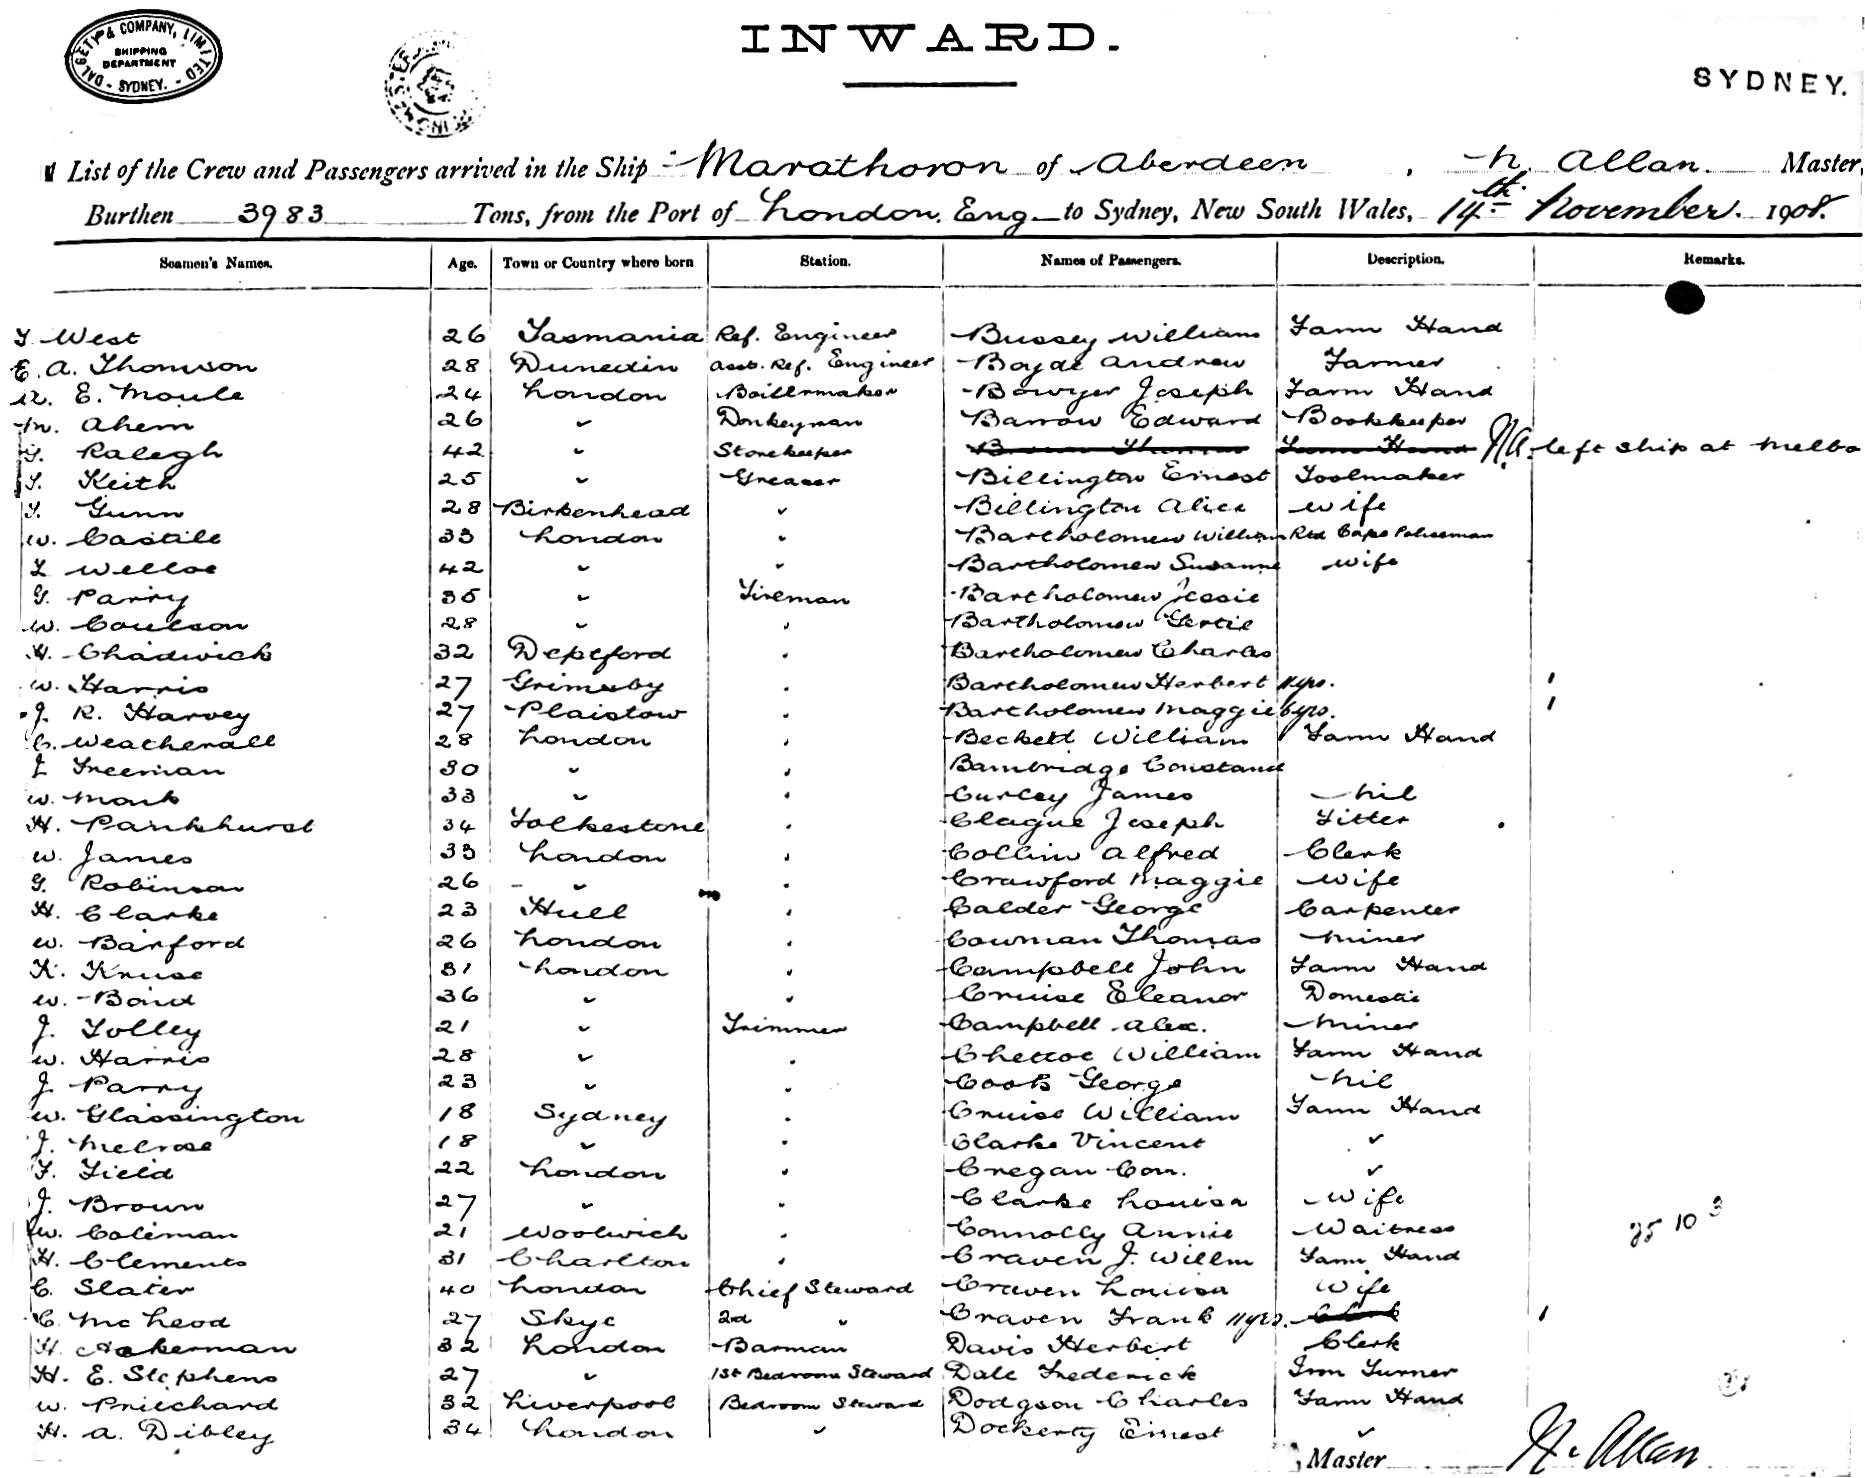 DALGETY & COMPANY, LIMITED
SHIPPING
DEPARTMENT
- SYDNEY. -
INWARD.
SYDNEY.
List of the Crew and Passengers arrived in the Ship Marathoron of Aberdeen, N. Allan. Master,
Burthen 3983 Tons, from the Port of London. Eng to Sydney, New South Wales, 14th November. 1908.
Seamen's Names. Age. Town or Country where born Station. Names of Passengers. Description. Remarks.
West 26 Tasmania Ref. Engineer Bussey William Farm Hand
E. A. Thomson 28 Dunedin asst. Ref. Engineer Boyde Andrew Farmer
E. Moule 24 London Boilermaker Bowyer Joseph Farm Hand
M. Ahern 26 " Donkeyman Barrow Edward Bookkeeper
Ralegh 42 " Storekeeper Thomas Farm Hand N.A. left ship at Melbo
Keith 25 " Greaser Billington Ernest Toolmaker
Gunn 28 Birkenhead " Billington Alice wife
W. Castile 33 London " Bartholomew William Retd Cape Policeman
42 " " Bartholomew Susanne wife
G. Parry 35 " Fireman Bartholomew Jessie
W. Coulson 28 " " Bartholomew Gertie
H. Chadwick 32 Deptford " Bartholomew Charles
W. Harris 27 Grimsby " Bartholomew Herbert 11yrs.
J. R. Harvey 27 Plaistow " Bartholomew Maggie 6yrs.
C. Weatherall 28 London " Beckett William Farm Hand
Freeman 30 " " Bambridge Constance
W. Monk 33 " " Curley James Nil
H. Pankhurst 34 Folkestone " Clague Joseph Fitter
W. James 33 London " Collin Alfred Clerk
G. Robinson 26 " " Crawford Maggie Wife
H. Clarke 23 Hull " Calder George Carpenter
W. Barford 26 London " Cowman Thomas Miner
K. Kruse 31 London " Campbell John Farm Hand
W. 36 " " Cruise Eleanor Domestic
J. Tolley 21 " Trimmer Campbell Alex. Miner
W. Harris 28 " " Chettoe William Farm Hand
J. Parry 23 " " Cook George Nil
W. Glassington 18 Sydney " Cruise William Farm Hand
J. Melrose 18 " " Clarke Vincent "
F. Field 22 London " Cregan Con. "
J. Brown 27 " " Clarke Louisa Wife
W. Coleman 21 Woolwich " Connolly Annie Waitress
H. Clements 31 Charlton " Craven J. Willm Farm Hand
C. Slater 40 London Chief Steward Craven Louisa Wife
C. McLeod 27 Skye 2nd " Craven Frank 11yrs. Clerk
H. Ackerman 32 London Barman Davis Herbert Clerk
H. E. Stephens 27 " 1st Bedroom Steward Dale Frederick Iron Turner
W. Pritchard 32 Liverpool Bedroom Steward Dodgson Charles Farm Hand
H. A. Dibley 34 London " Dockerty Ernest "
Master N. Allan